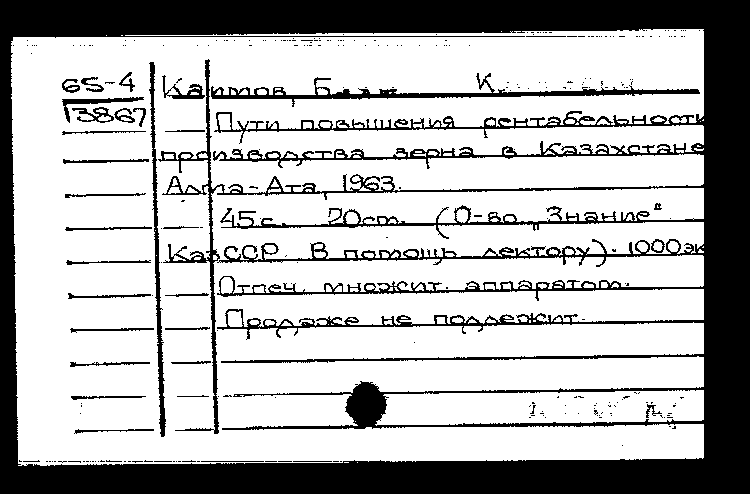 65-4
13867
Каимов, Б
Пути повышения рентабельности
производства зерна в Казахстане
Алма-Ата, 1963.
45с. 20см. (О-во „Знание“
КазССР. В помощь лектору). 1000эк
Отпеч. множит. аппаратом.
Продаже не подлежит.